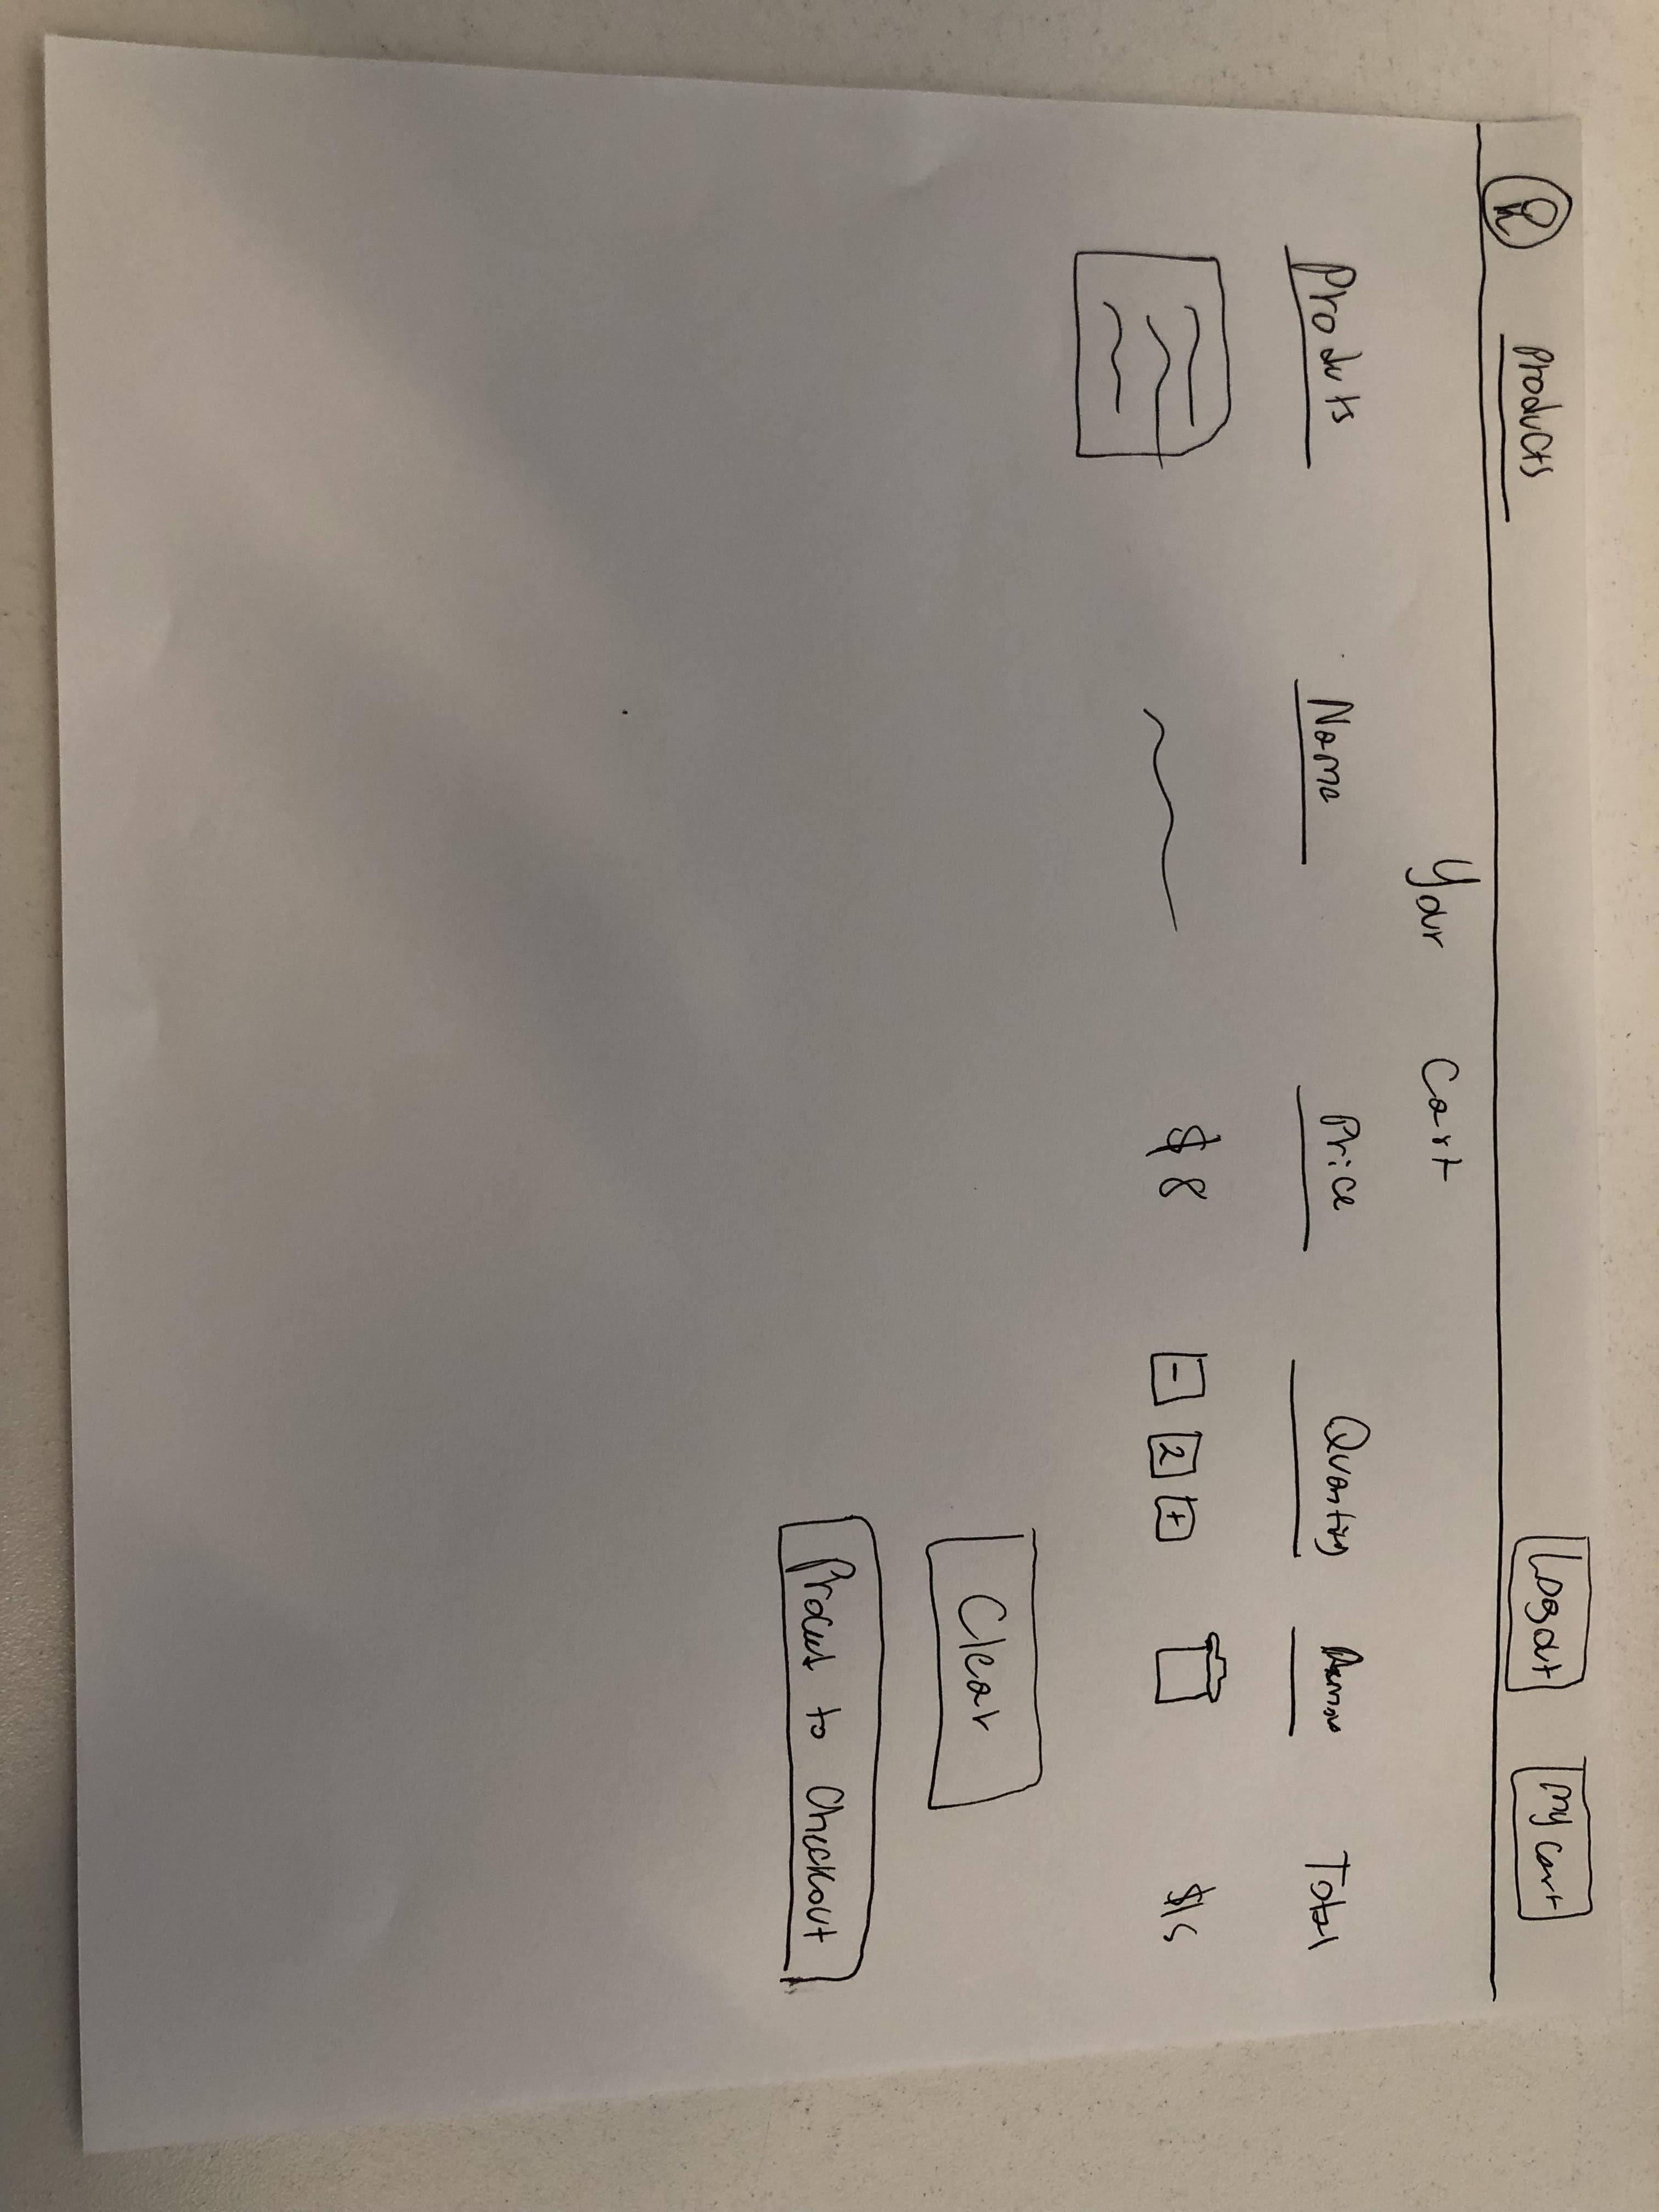 Products
Logout
My Cart
Your Cart
Produts
Name
Price
Quantity
Total
$8
-
2
+
Clear
to Checkout